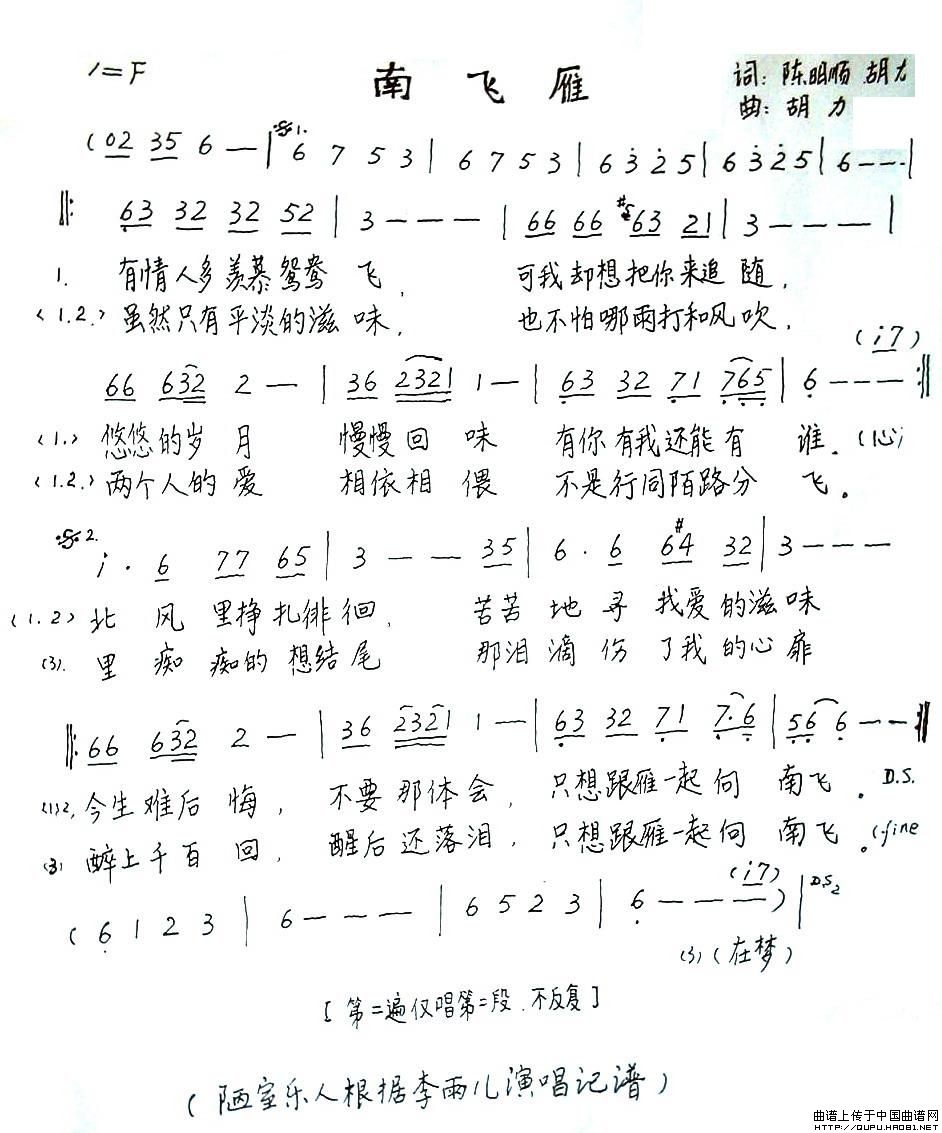 1=F 南飞雁 词：陈明顺 胡力
曲：胡力
(02 35 6 — | 𝄋1. 6 7 5 3 | 6 7 5 3 | 6 3̇ 2̇ 5 | 6 3̇ 2̇ 5 | 6 — — - |
‖: 6̣3 32 32 52 | 3 — — — | 66 66 #63 21 | 3 — — — |
1. 有情人多羡慕鸳鸯飞， 可我却想把你来追随，
<1.2.> 虽然只有平淡的滋味， 也不怕哪雨打和风吹，
(i7)
66 632 2 — | 36 2321 1 — | 6̣3 32 7̣1 7̣6̣5̣ | 6̣ — — — :‖
<1.> 悠悠的岁月 慢慢回味 有你有我还能有谁．(心)
<1.2.> 两个人的爱 相依相偎 不是行同陌路分飞．
𝄋2.
i · 6 77 65 | 3 — — 35 | 6 · 6 6#4 32 | 3 — — —
(1.2) 北风里挣扎徘徊， 苦苦地寻我爱的滋味
(3). 里痴痴的想结尾 那泪滴伤了我的心扉
‖: 66 632 2 — | 36 2321 1 — | 6̣3 32 7̣1 7̣·6̣ | 5̣6̣ 6̣ — — :‖
(1)2, 今生难后悔， 不要那体会， 只想跟雁一起向南飞． D.S.
(3) 醉上千百回， 醒后还落泪， 只想跟雁一起向南飞。(fine
(i7)
( 6̣ 1 2 3 | 6 — — — | 6 5 2 3 | 6̣ — — — ) | D.S2
(3) (在梦)
[ 第二遍仅唱第二段．不反复 ]
( 陋室乐人根据李雨儿演唱记谱 )
曲谱上传于中国曲谱网
HTTP://QUPU.HAO81.NET